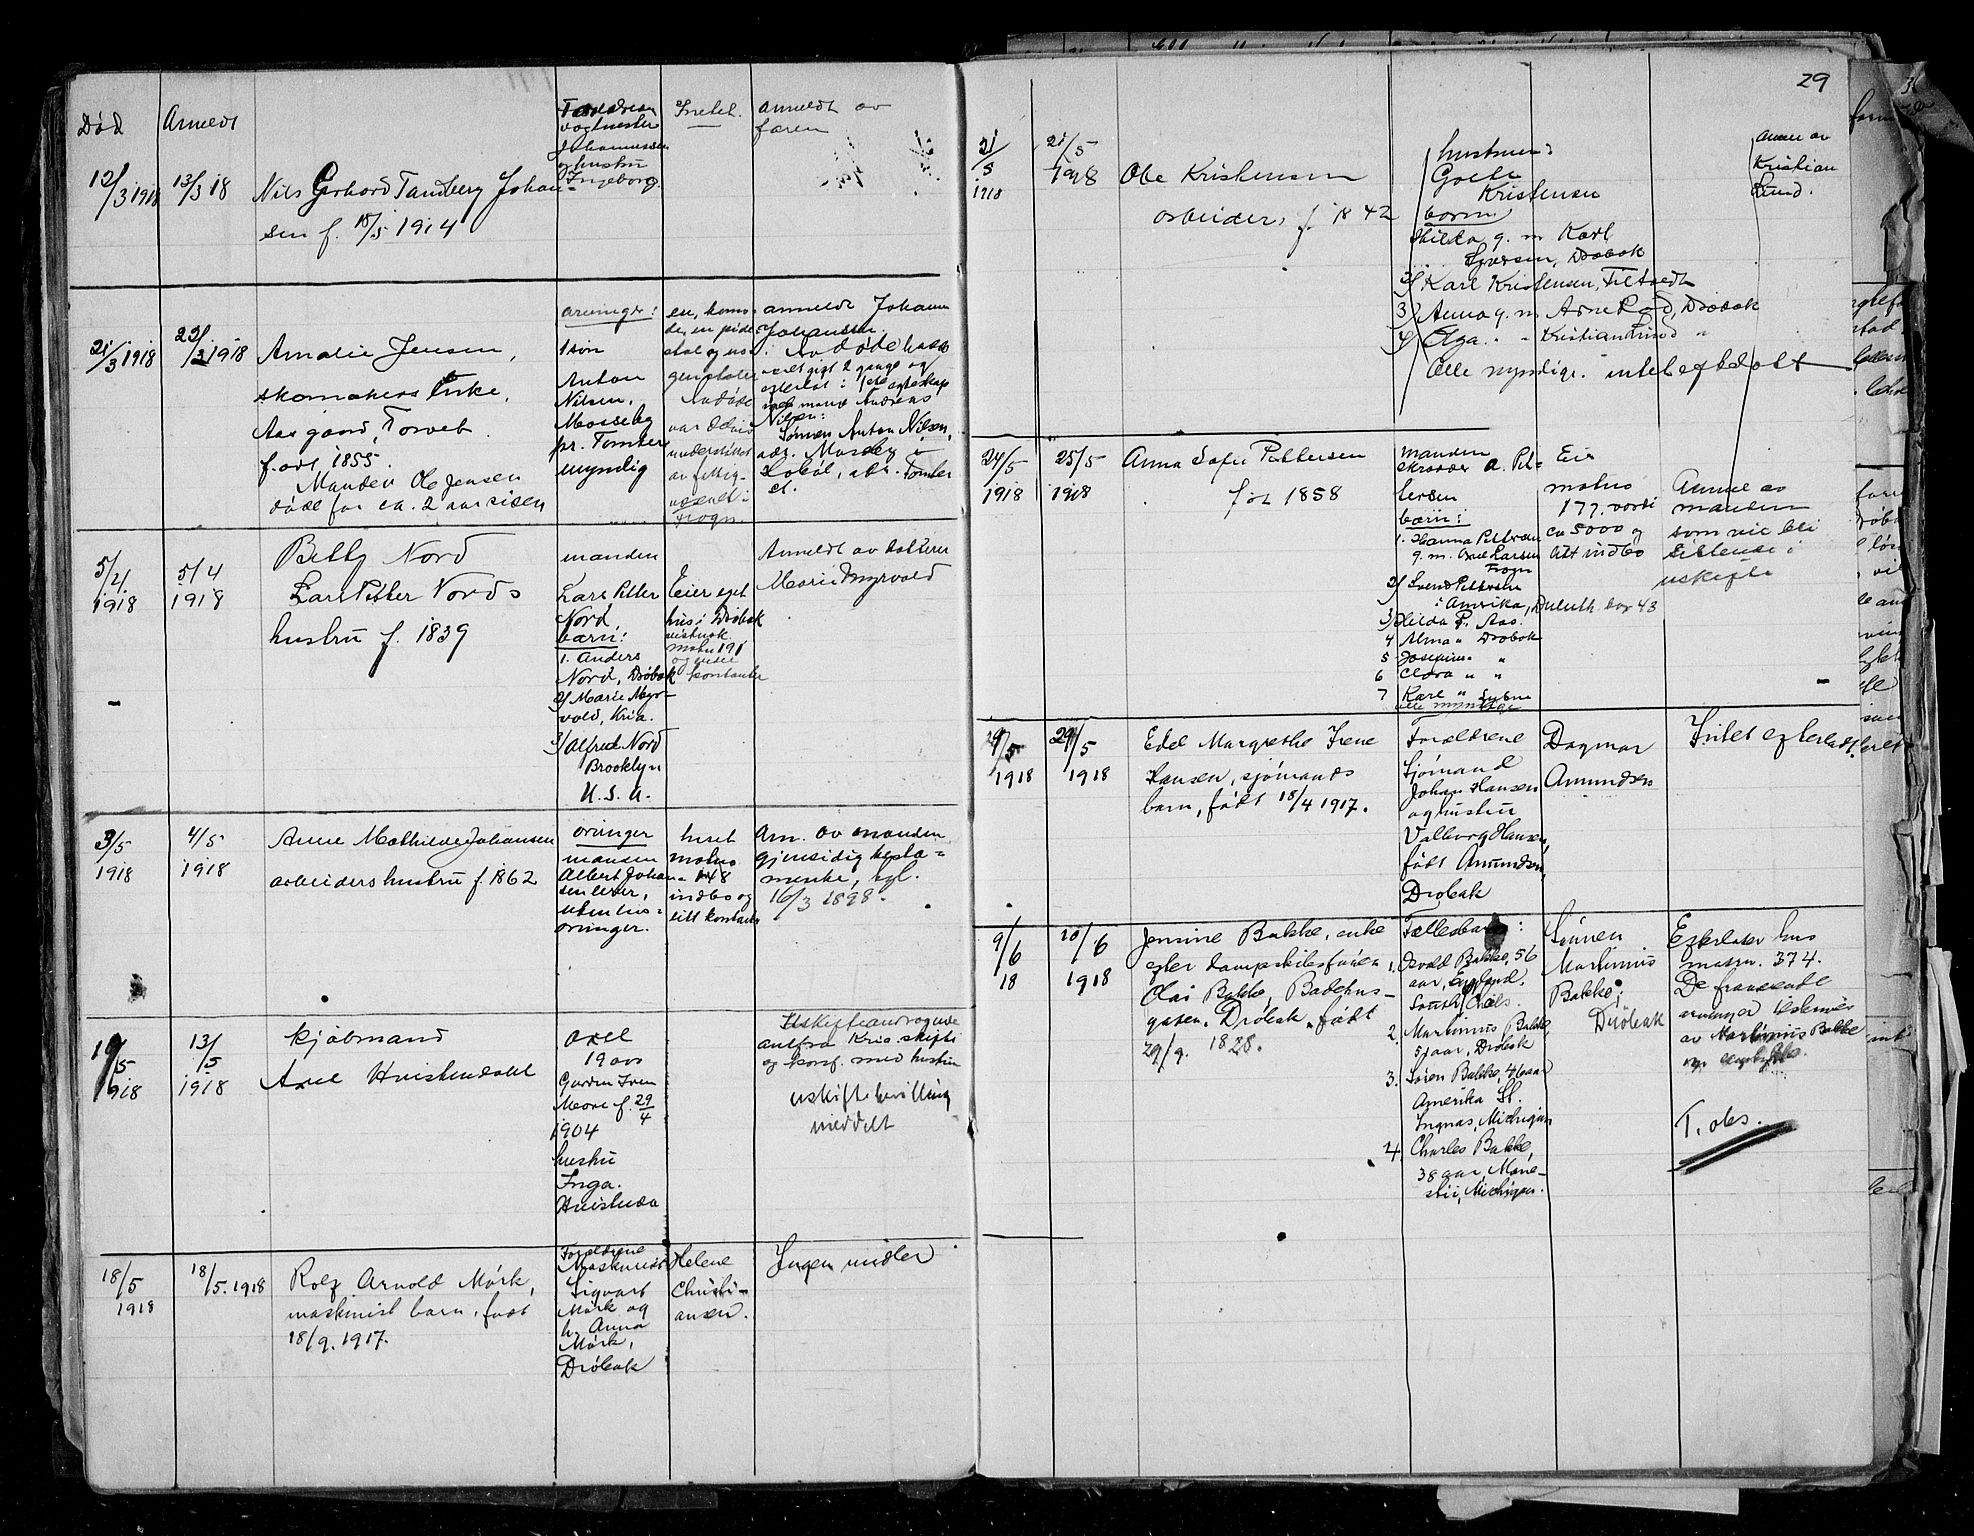 Død
Anmeldt
Forældrene
vogtmester
Johannessen
og hustru
Ingeborg.
Intet.
anmeldt av
faren
12/3 1918
13/3 18
Nils Gerhard Tandberg Johan-
sen f. 18/5 1914
21/3 1918
22/3 1918
Amalie Jensen,
skomakers Enke,
Aasgaard, Torvet.
født 1855.
Manden Ole Jensen
døde for ca. 2 aar siden
arvinger:
1 søn
Anton
Nilsen,
Mosseby
pr. Tomter
myndig
en komo-
de, en pide-
stal og no-
gen stoler
Avdøde
var delvis
understøttet
av fattig-
væsenet i
Frogn.
anmeldt Johann
Johansen.
Avdøde hadde
været gift 2 gange og
efterlot i 1ste egteskap
med mand Andreas
Nilsen:
Sønnen Anton Nilsen,
adr. Mosseby i
Hobøl, adr. Tomter
st.
5/4
1918
5/4
1918
Betty Nord
Lars Petter Nords
hustru f. 1839
manden
Lars Petter
Nord,
bærn:
1. Anders
Nord, Drøbak
2/ Marie Myr-
vold, Kria.
3/ Alfred Nord
Brooklyn
U.S.A.
Eier eget
hus i Drøbak
matno 191
og endel
kontanter
Anmeldt av datteren
Marie Myrvold
3/5
1918
4/5
1918
Anne Mathilde Johansen
arbeiders hustru f. 1862
arvinger
manden
Albert Johan-
sen lever,
uten livs-
arvinger.
huset
matno
148
indbo og
litt kontanter
Anm. av manden
gjensidig testa-
mente, tgl.
16/3 1898.
10/5
1918
13/5
1918
Kjøbmand
Axel Hvistendahl
Axel
19 aar
Gudrun Iren
Merre f. 29/4
1904
hustru
Inga
Hvistenda
Uskifteandragende
antfra Kria. skifte
og konf. med hustru
uskiftebevilling
meddelt
18/5
1918
18/5. 1918
Rolf Arnold Mørk,
maskinist barn, født
18/9. 1917.
Forældrene
Maskinist
Sigvart
Mørk og
h. Anna
Mørk,
Drøbak
Helene
Christi-
ansen.
Ingen midler
29
21/5
1918
21/5
1918
Ole Kristensen
arbeider, f. 1842
hustruen:
Goete
Kristensen
børn
Hilda g. m. Karl
Syversen, Drøbak
2/ Karl Kristensen, Filtvedt
3/ Anna g. m. Arne Rød, Drøbak
4/ Olga " " Kristian Lund "
Alle myndige. intet efterladt
Anm. av
Kristian
Lund.
24/5
1918
25/5
1918
Anna Sofie Pettersen
født 1858
manden
skrædder A. Pet-
tersen
bærn:
1. Hanna Pettersen
g. m. Axel Larsen
Frogn
2/ Svend Pettersen
i Amerika, Duluth box 43
3/ Hilda P. Aas.
4 Alma " Drøbak
5 Josefine " "
6 Clara " "
7 Karl "
alle myndige
Eier
matno
177. værdi
ca 5000 og
litt indbo
Anm. av
manden
som vil bli
sittende i
uskifte
29/5
1918
29/5
1918
Edel Margrethe Irene
Hansen, sjømands
barn, født 18/4 1917.
Forældrene
Sjømand
Johan Hansen
og hustru
Valborg Hansen,
født Amundsen,
Drøbak
Dagmar
Amundsen
Intet efterladt
9/6
18
10/6
1918
Jensine Bakke, enke
efter dampskibsfører
Olai Bakke, Badehus-
gaten, Drøbak, født
29/9. 1828.
Fællesbarn:
1. Osvald Bakke, 56
aar, England.
South Shiels.
2. Martinius Bakke,
51 aar, Drøbak
3. Søren Bakke, 46 aar
Amerika St.
Ingnas, Michigan
4. Charles Bakke,
38 aar Mane-
stii, Michigan.
Sønnen
Martinius
Bakke,
Drøbak
Efterlater hus
matrn. 374.
De fraværende
arvinger
av Martinius Bakke
T. obs.